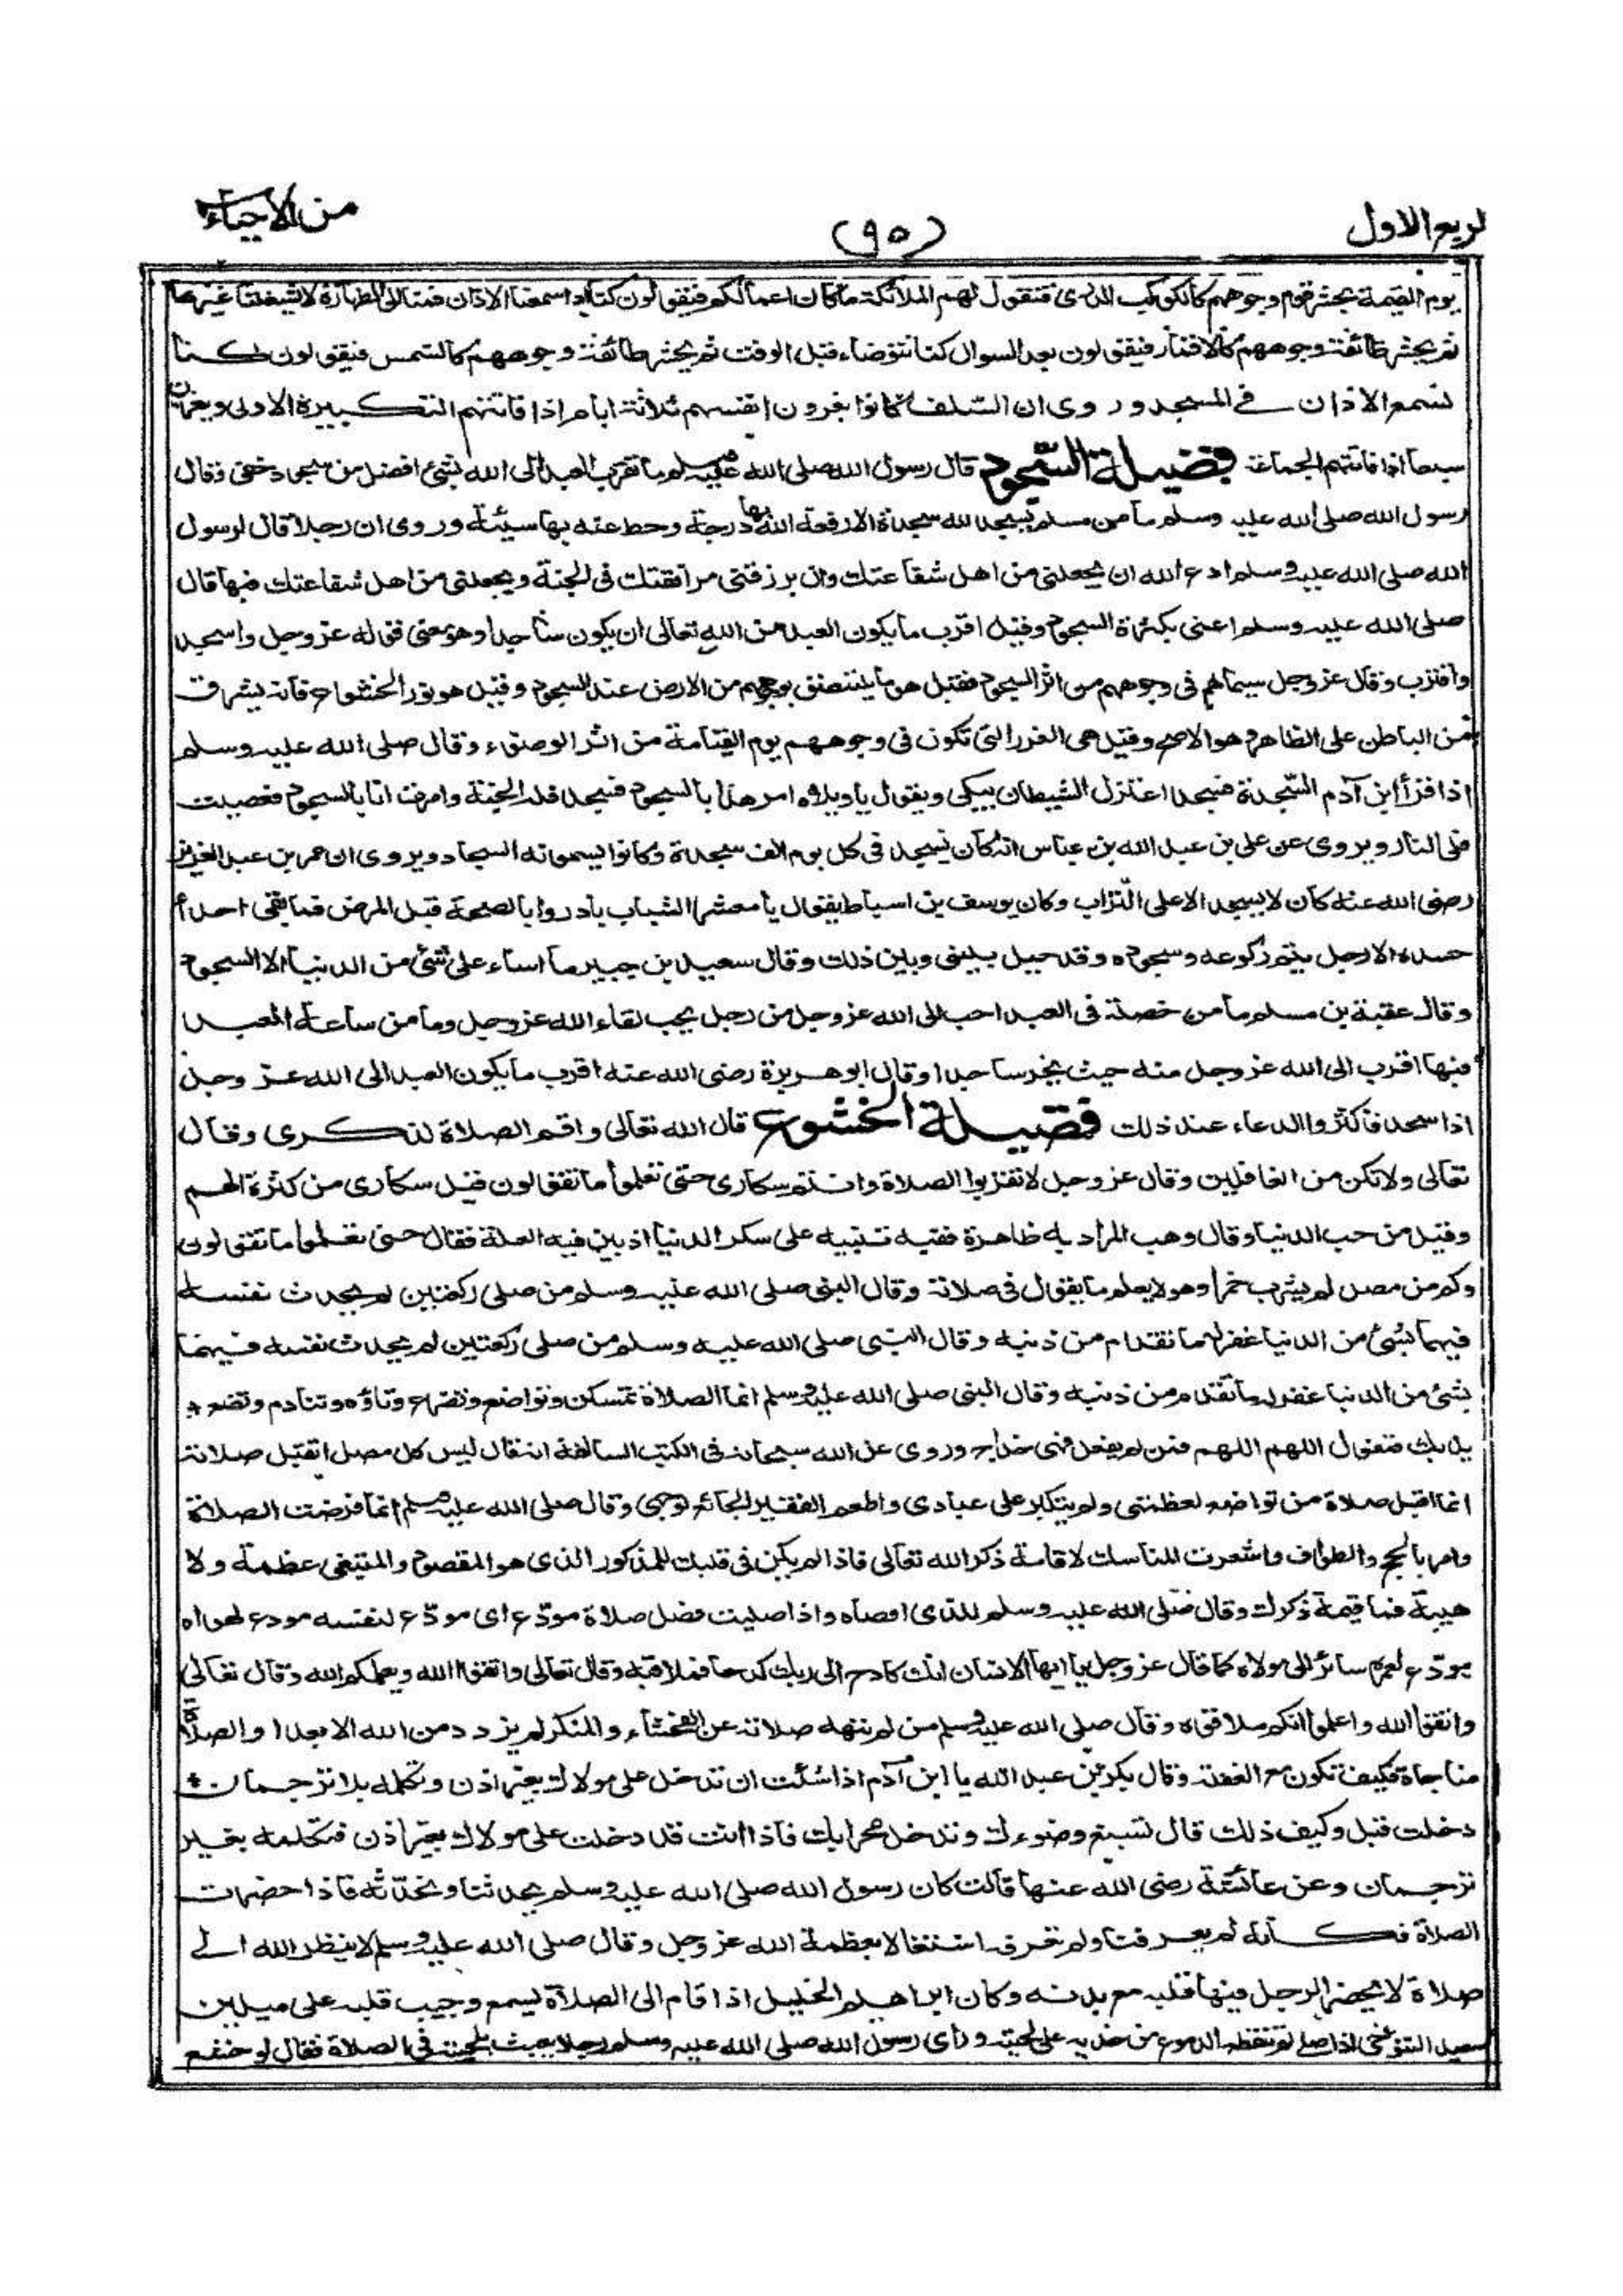 لربع الاول
(٩٥)
من الاحياء
يوم القيمة يحشر قوم وجوههم كالكوكب الدرى فتقول لهم الملائكة ما كان اعمالكم فيقولون كنا اذا سمعنا الاذان قمنا الى الطهارة لا يشغلنا غيرها
ثم يحشر طائفة وجوههم كالاقمار فيقولون بعد السوال كنا نتوضاء قبل الوقت ثم يحشر طائفة وجوههم كالشمس فيقولون كنا
نسمع الاذان فى المسجد وروى ان السلف كانوا يعزون انفسهم ثلاثة ايام اذا فاتتهم التكبيرة الاولى ويعزون
سبعا اذا فاتتهم الجماعة فضيلة السّجود قال رسول الله صلى الله عليه وسلم ما تقرب العبد الى الله بشئ افضل من سجود خفى وقال
رسول الله صلى الله عليه وسلم ما من مسلم يسجد لله سجدة الا رفعه الله بها درجة وحط عنه بها سيئة وروى ان رجلا قال لرسول
الله صلى الله عليه وسلم ادع الله ان يجعلنى من اهل شفاعتك وان يرزقنى مرافقتك فى الجنة ويجعلنى من اهل شفاعتك فيها قال
صلى الله عليه وسلم اعنى بكثرة السجود وقيل اقرب ما يكون العبد من الله تعالى ان يكون ساجدا وهو معنى قوله عز وجل واسجد
واقترب وقال عز وجل سيماهم فى وجوههم من اثر السجود فقيل هو ما يلتصق بوجوههم من الارض عند السجود وقيل هو نور الخشوع فانه يشرق
من الباطن على الظاهر وهو الاصح وقيل هى الغرر التى تكون فى وجوههم يوم القيامة من اثر الوضوء وقال صلى الله عليه وسلم
اذا قرأ ابن آدم السّجدة فسجد اعتزل الشيطان يبكى ويقول يا ويلاه امر هذا بالسجود فسجد فله الجنة وامرت انا بالسجود فعصيت
فلى النار ويروى عن على بن عبد الله بن عباس انه كان يسجد فى كل يوم الف سجدة وكانوا يسمونه السجاد ويروى ان عمر بن عبد العزيز
رضى الله عنه كان لا يسجد الا على التراب وكان يوسف بن اسباط يقول يا معشر الشباب بادروا بالصحة قبل المرض فما بقى احد أ
حسده الا رجل يتم ركوعه وسجوده وقد حيل بينى وبين ذلك وقال سعيد بن جبير ما اساء على شئ من الدنيا الا السجود
وقال عقبة بن مسلم ما من خصلة فى العبد احب الى الله عز وجل من رجل يحب لقاء الله عز وجل وما من ساعة العبد
فيها اقرب الى الله عز وجل منه حيث يخر ساجدا وقال ابو هريرة رضى الله عنه اقرب ما يكون العبد الى الله عز وجل
اذا سجد فاكثروا الدعاء عند ذلك فضيلة الخشوع قال الله تعالى واقم الصلاة لذكرى وقال
تعالى ولا تكن من الغافلين وقال عز وجل لا تقربوا الصلاة وانتم سكارى حتى تعلموا ما تقولون قيل سكارى من كثرة الهم
وقيل من حب الدنيا وقال وهب المراد به ظاهرة ففيه تنبيه على سكر الدنيا اذ بين فيه العلة فقال حتى تعلموا ما تقولون
وكم من مصل لم يشرب خمرا وهو لا يعلم ما يقول فى صلاته وقال النبى صلى الله عليه وسلم من صلى ركعتين لم يحدث نفسه
فيهما بشئ من الدنيا غفر لهما تقدم من ذنبه وقال النبى صلى الله عليه وسلم من صلى ركعتين لم يحدث نفسه فيهما
بشئ من الدنيا غفر له ما تقدم من ذنبه وقال النبى صلى الله عليه وسلم انما الصلاة تمسكن وتواضع وتضرع وتاؤه وتنادم وتضع
يديك فتقول اللهم اللهم فمن لم يفعل فهى خداج وروى عن الله سبحانه فى الكتب السالفة انه قال ليس كل مصل اتقبل صلاته
انما اقبل صلاة من تواضع لعظمتى ولم يتكبر على عبادى واطعم الفقير الجائع لوجهى وقال صلى الله عليه وسلم انما فرضت الصلاة
وامر بالحج والطواف واشعرت المناسك لاقامة ذكر الله تعالى فاذا لم يكن فى قلبك للمذكور الذى هو المقصود والمبتغى عظمة ولا
هيبة فما قيمة ذكرك وقال صلى الله عليه وسلم للذى اوصاه واذا صليت فصل صلاة مودّع اى مودّع لنفسه مودع لهواه
مودّع لعمره سائر الى مولاه كما قال عز وجل يا ايها الانسان انك كادح الى ربك كدحا فملاقيه وقال تعالى واتقوا الله ويعلمكم الله وقال تعالى
واتقوا الله واعلموا انكم ملاقوه وقال صلى الله عليه وسلم من لم تنهه صلاته عن الفحشاء والمنكر لم يزدد من الله الا بعدا والصلاة
مناجاة فكيف تكون مع الغفلة وقال بكر بن عبد الله يا ابن آدم اذا شئت ان تدخل على مولاك بغير اذن وتكلمه بلا ترجمان
دخلت قيل وكيف ذلك قال تسبغ وضوءك وتدخل محرابك فاذا انت قد دخلت على مولاك بغير اذن فتكلمه بغير
ترجمان وعن عائشة رضى الله عنها قالت كان رسول الله صلى الله عليه وسلم يحدثنا ونحدّثه فاذا حضرت
الصلاة فكأنه لم يعرفنا ولم نعرفه اشتغالا بعظمة الله عز وجل وقال صلى الله عليه وسلم لا ينظر الله الى
صلاة لا يحضر الرجل فيها قلبه مع بدنه وكان ابراهيم الخليل اذا قام الى الصلاة يسمع وجيب قلبه على ميلين
سعيد التنوخى اذا صلى لم تنقطع الدموع من خديه على لحيته وراى رسول الله صلى الله عليه وسلم رجلا يعبث بلحيته فى الصلاة فقال لو خشع